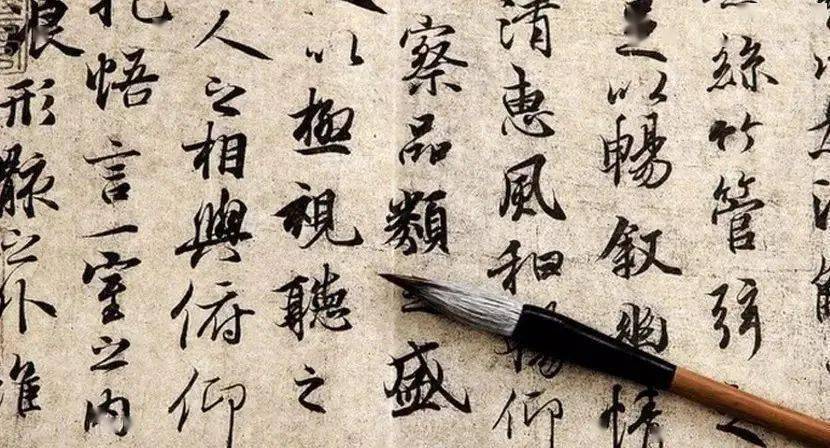 以為流
絲竹管弦之
足以暢叙幽情
清惠風和暢仰
察品類之盛
以極視聽之
人之相與俯仰
抱悟言一室之內
浪形骸之外雖